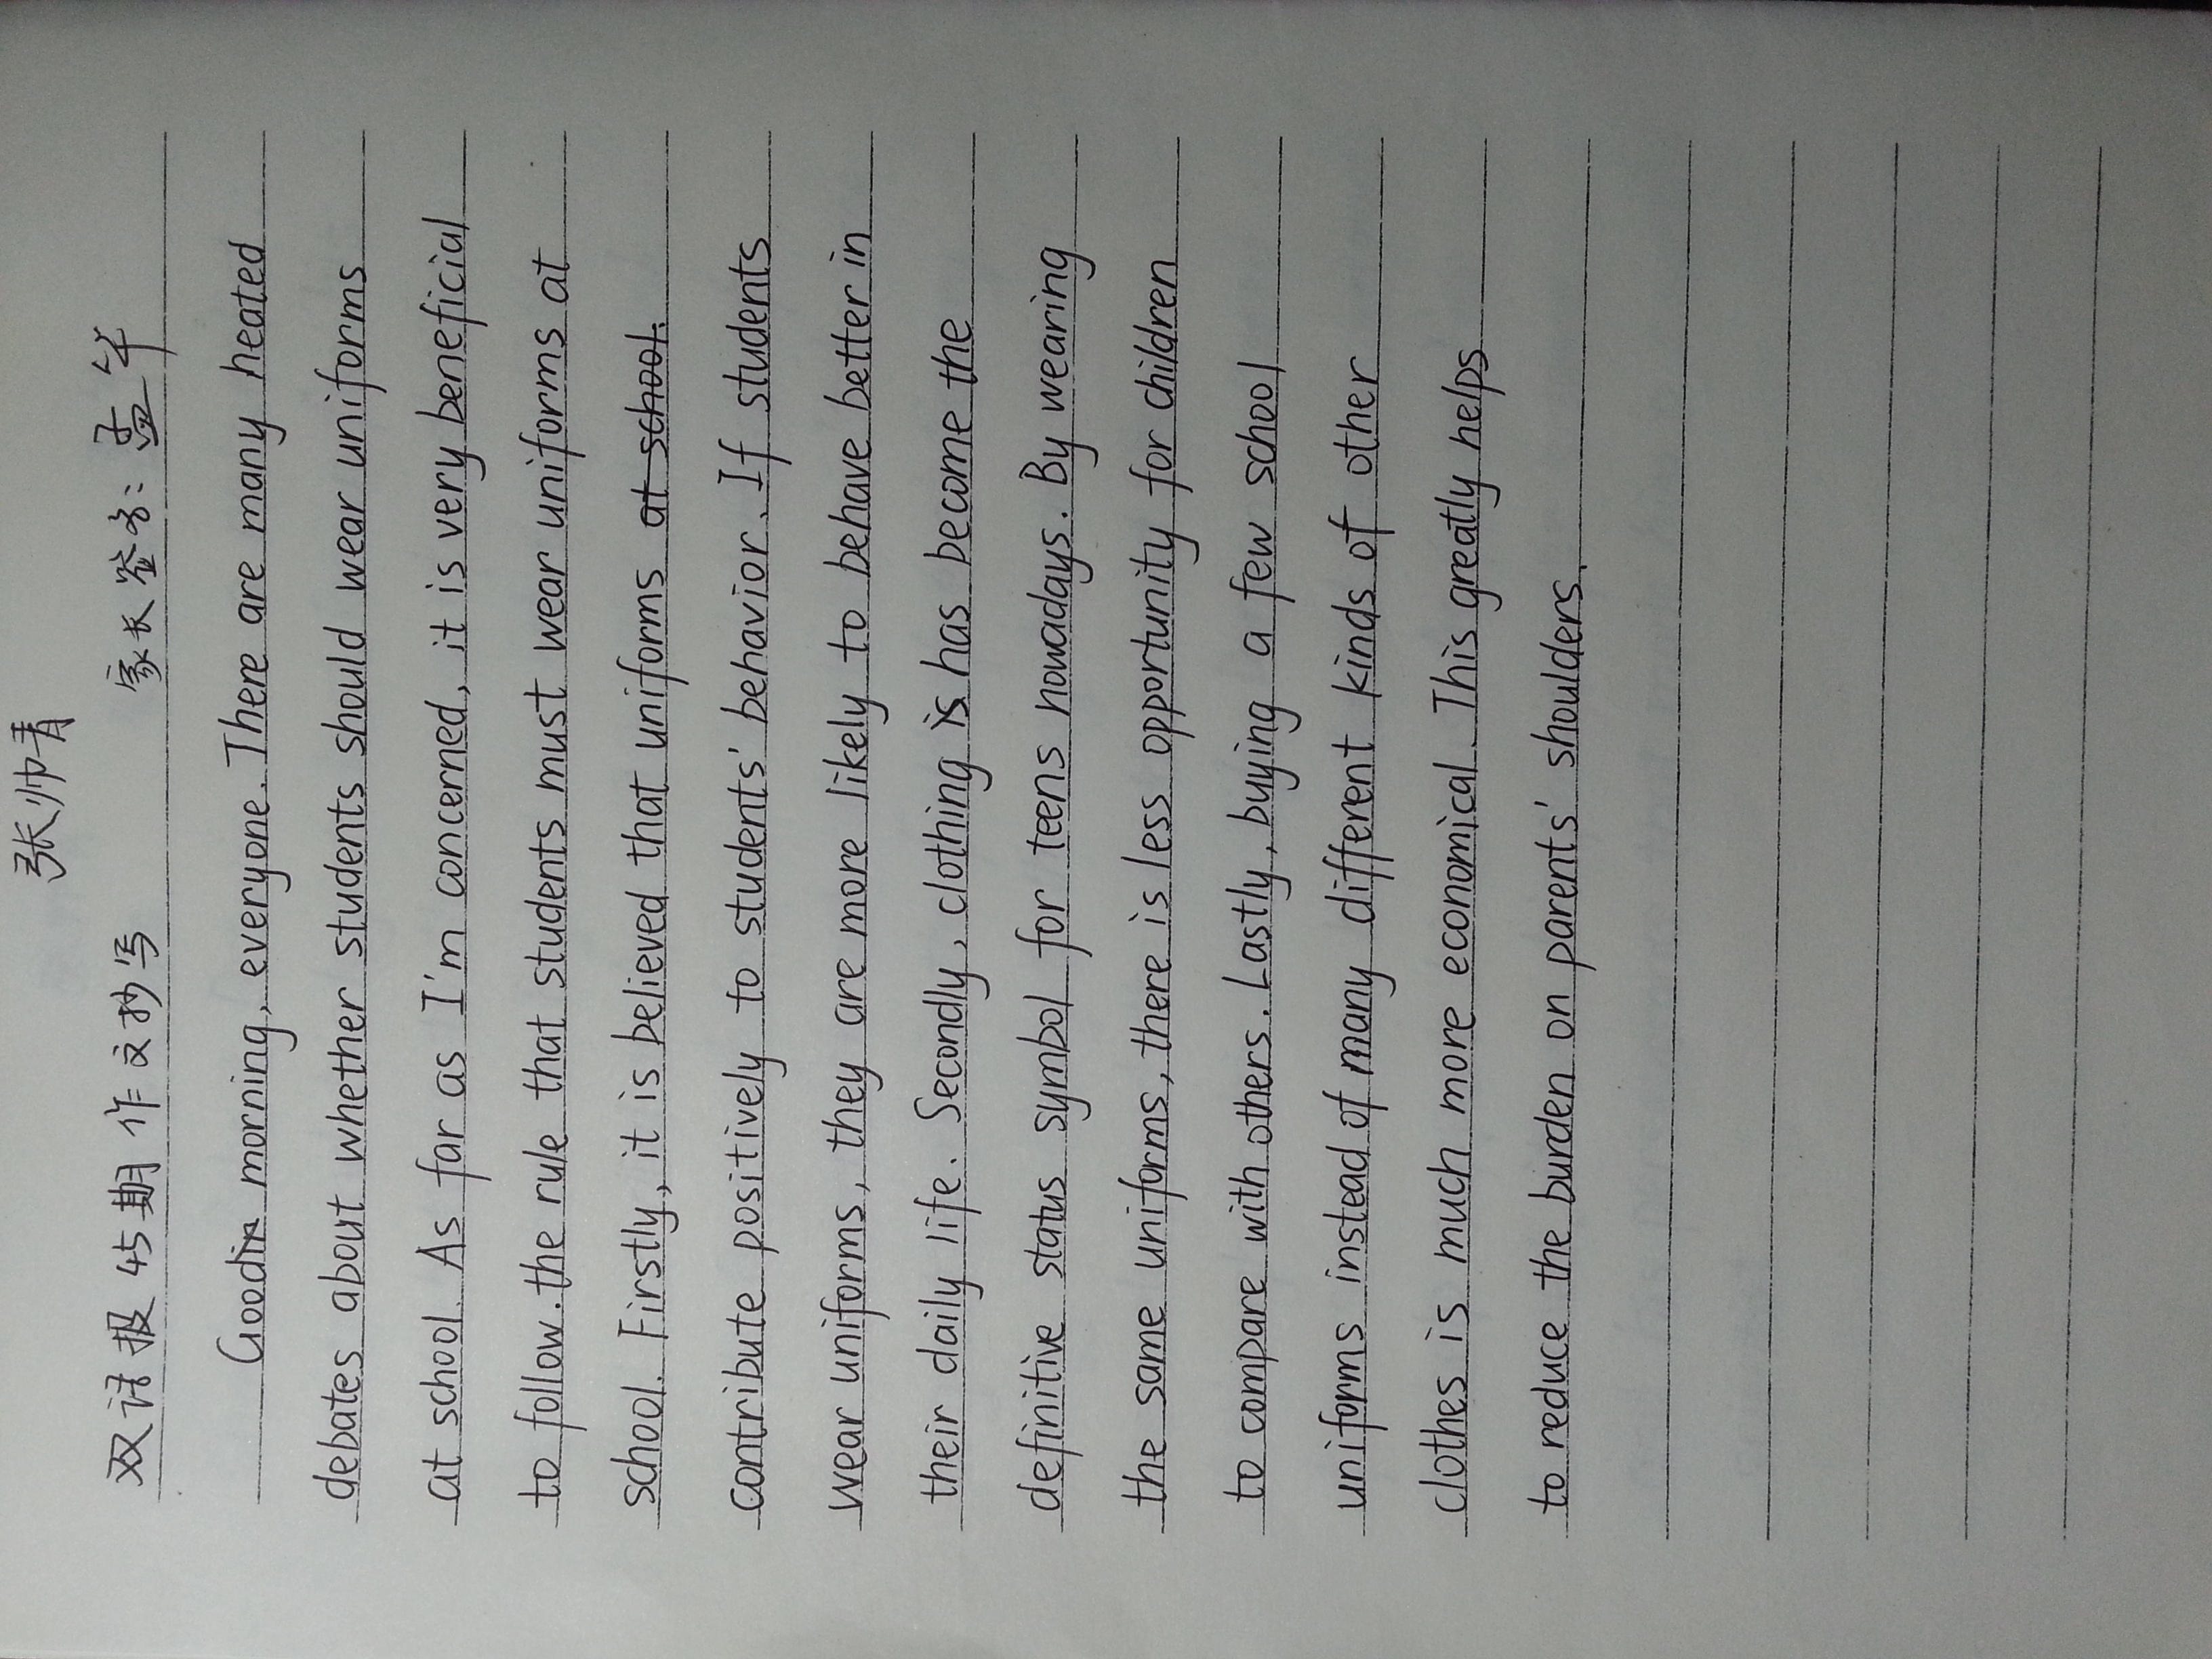 张帅青
双语报 45期 作文抄写 家长签名: 孟华
Good morning, everyone. There are many heated
debates about whether students should wear uniforms
at school. As far as I'm concerned, it is very beneficial
to follow. the rule that students must wear uniforms at
school. Firstly, it is believed that uniforms at school.
contribute positively to students' behavior. If students
wear uniforms, they are more likely to behave better in
their daily life. Secondly, clothing is has become the
definitive status symbol for teens nowadays. By wearing
the same uniforms, there is less opportunity for children
to compare with others. Lastly, buying a few school
uniforms instead of many different kinds of other
clothes is much more economical. This greatly helps
to reduce the burden on parents' shoulders.